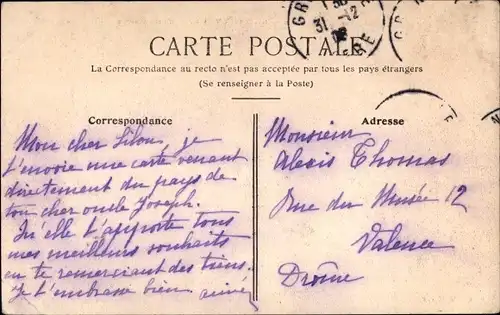 CARTE POSTALE
La Correspondance au recto n'est pas acceptée par tous les pays étrangers
(Se renseigner à la Poste)
Correspondance
Mon cher Lilou, je
t'envoie une carte venant
directement du pays de
ton cher oncle Joseph.
Qu'elle t'apporte tous
mes meilleurs souhaits
en te remerciant des tiens.
Je t'embrasse bien
Adresse
Monsieur
Alexis Thomas
Rue du Musée 12
Valence
Drôme
GR
31 -12